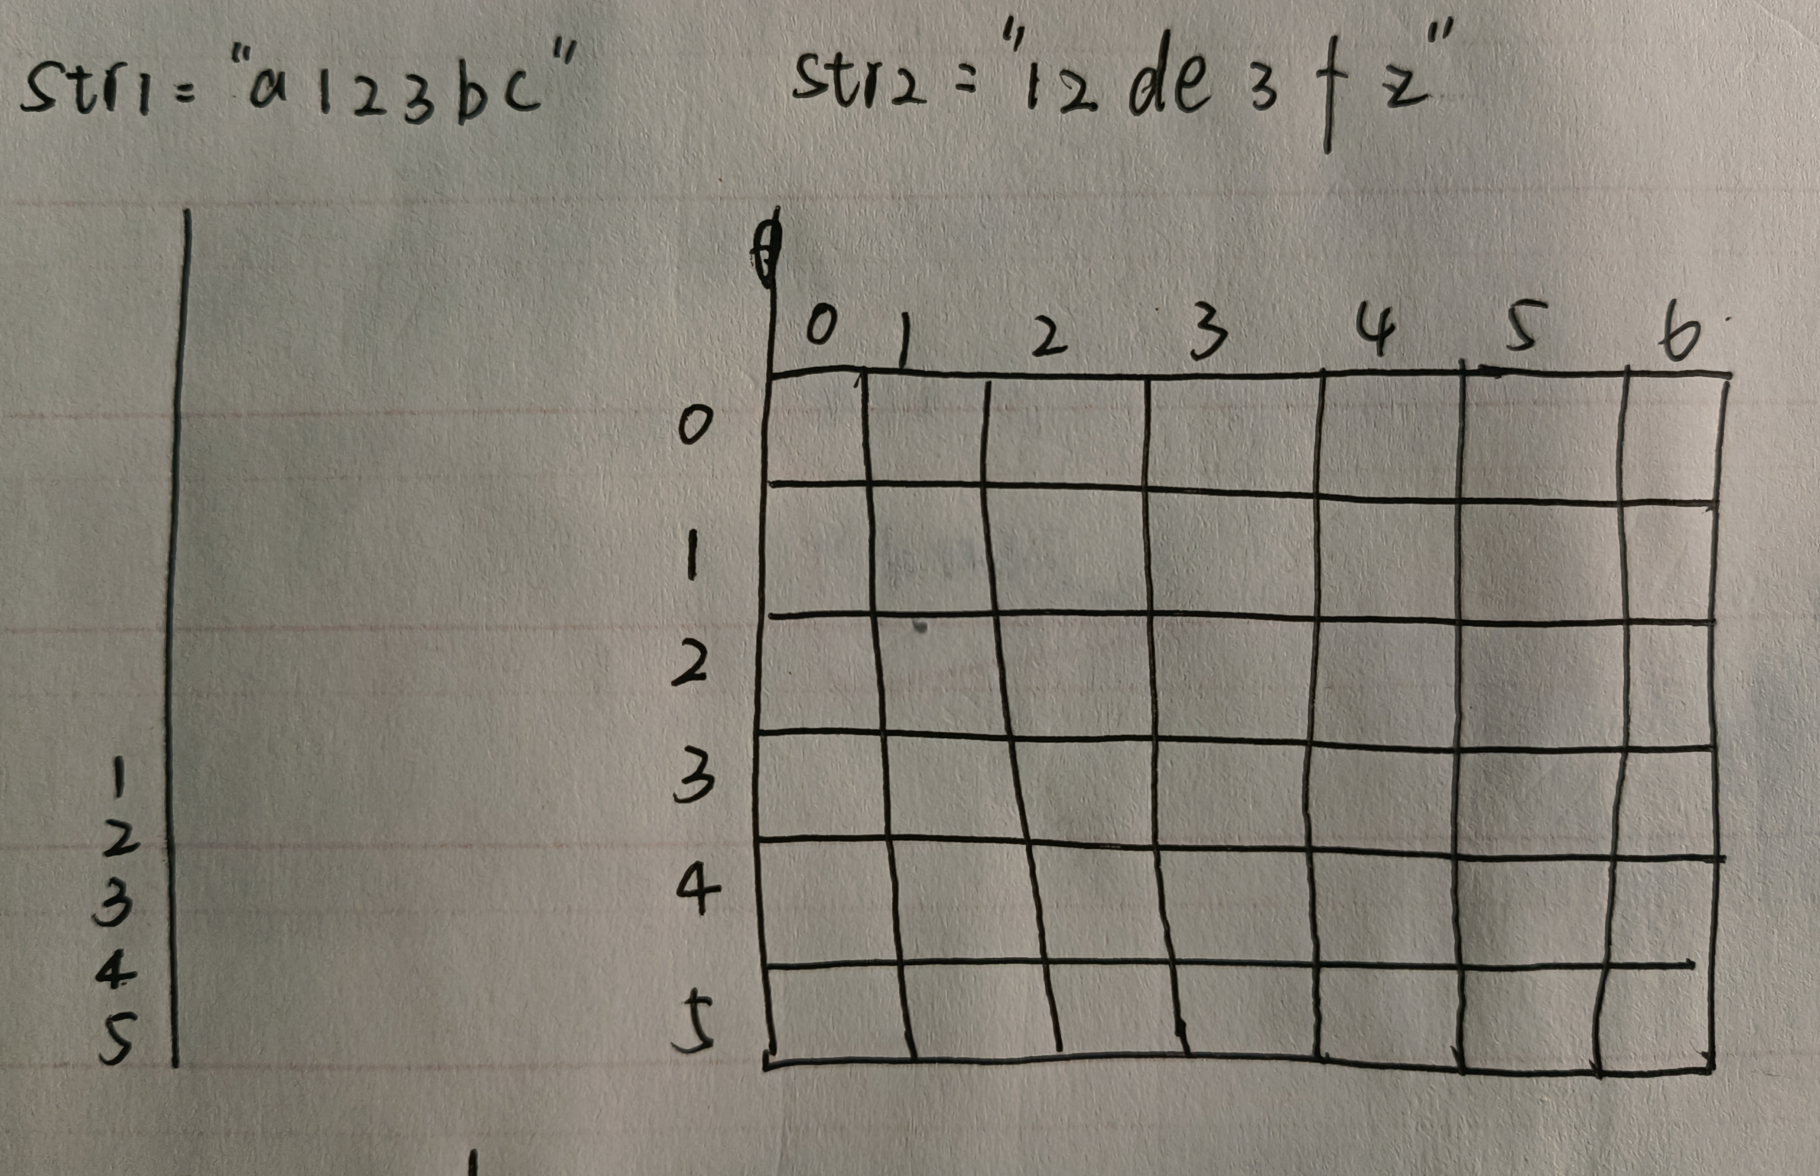 str1 = "a123bc" str2 = "12de3fz"
0 1 2 3 4 5 6
0
1
2
3
4
5
1
2
3
4
5